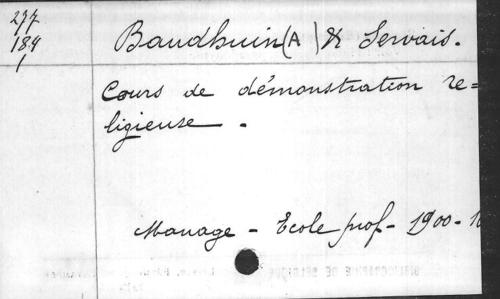 277
184
1
Baudhuin (A) & Servais.
Cours de démonstration re=
ligieuse.
Manage - Ecole prof - 1900 -